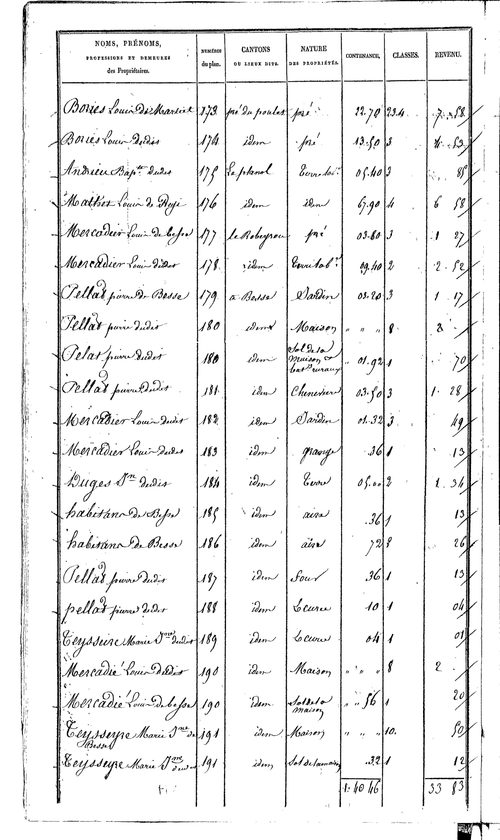 NOMS, PRÉNOMS, PROFESSIONS ET DEMEURES des Propriétaires. NUMÉROS du plan. CANTONS OU LIEUX DITS. NATURE DES PROPRIÉTÉS. CONTENANCE. CLASSES. REVENU.
Bories Louis de 173 pré du poulas pré 22.70 23.4 7.58
Bories Louis dudit 174 idem pré 13.50 3 4.53
Andrieu Bapte dudit 175 Le planol 05.40 3 85
Mathet Louis de 176 idem idem 67.90 4 6 58
Mercadier Louis de besse 177 le pré 03.80 3 1 27
Mercadier Louis dudit 178 idem 09.40 2 2.52
Pellat pierre de Besse 179 a Besse Jardin 03.20 3 1.17
Pellat pierre dudit 180 idem Maison " " " 8 3
Pelat pierre dudit 180 idem Sol de la maison & " 01.92 1 70
Pellat pierre dudit 181 idem Cheneviere 03.50 3 1.28
Mercadier Louis dudit 182 idem Jardin 01.32 3 49
Mercadier Louis dudit 183 idem grange 36 1 13
Huges Jn dudit 184 idem Terre 05.00 2 1.34
habitans de Besse 185 idem aire 36 1 13
habitans de Besse 186 idem aire 72 26
Pellat pierre dudit 187 idem four 36 1 13
pellat pierre dudit 188 idem Ecurie 10 1 04
Teysseire Marie dudit 189 idem Ecurie 04 1 01
Mercadié Louis dudit 190 idem Maison " " " 8 2
Mercadié Louis de besse 190 idem sol de la maison " " 56 1 20
Teysseyre Marie de Besse 191 idem Maison " " " 10. 50
Teysseyre Marie dudit 191 idem Sol de la maison 32 1 12
1.40 46 33 83